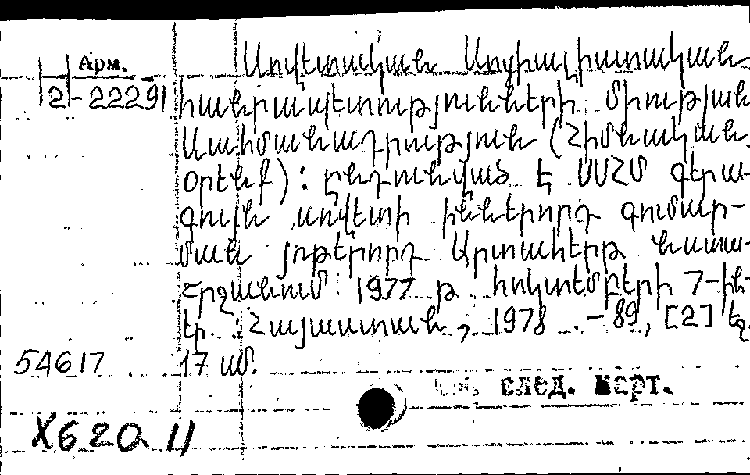 Арм.
2-22291
Սովետական Սոցիալիստական
հանրապետությունների միության
Սահմանադրություն (Հիմնական
օրենք): Ընդունված է ՍՍՀՄ գերա-
գույն սովետի իններորդ գումար-
ման յոթերորդ արտահերթ նստա-
շրջանում 1977 թ. հոկտեմբերի 7-ին
Եր. Հայաստան, 1978 - 89, [2] էջ
54617 17 սմ.
См. след. карт.
X620.11